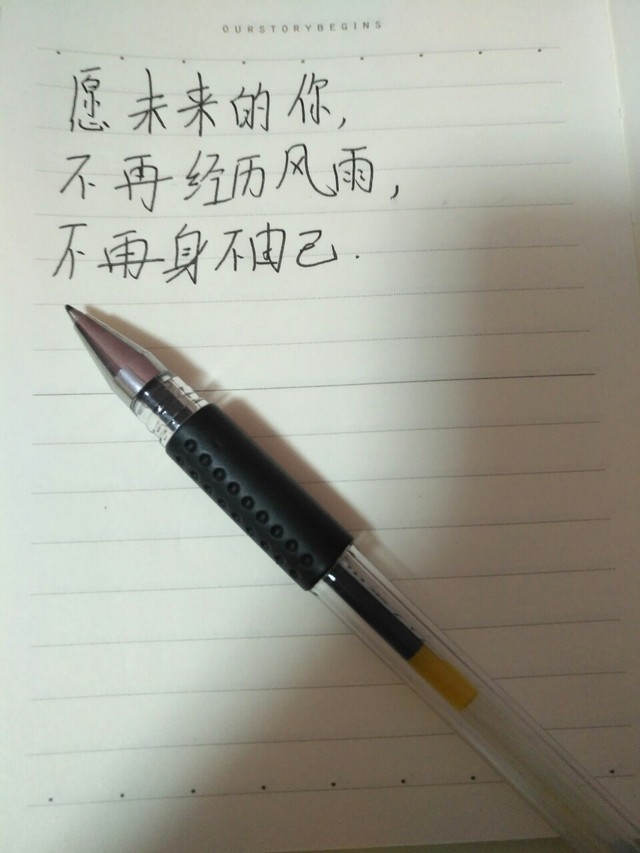 OURSTORYBEGINS
愿未来的你,
不再经历风雨,
不再身不由己.